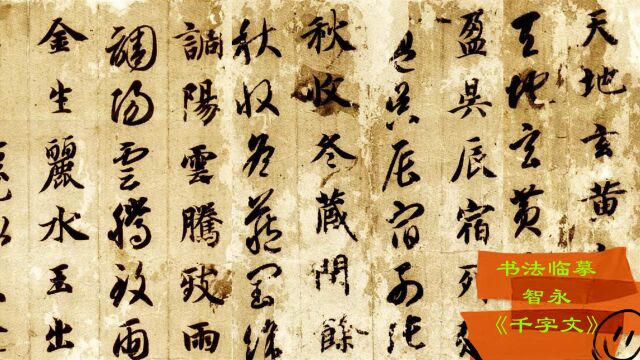 天地玄黄
天地玄黄
盈昃辰宿列
昃辰宿列張
秋收冬藏閏餘
秋收冬藏閏餘
調陽雲騰致雨
調陽雲騰致雨
金生麗水玉出
书法临摹
智永
《千字文》